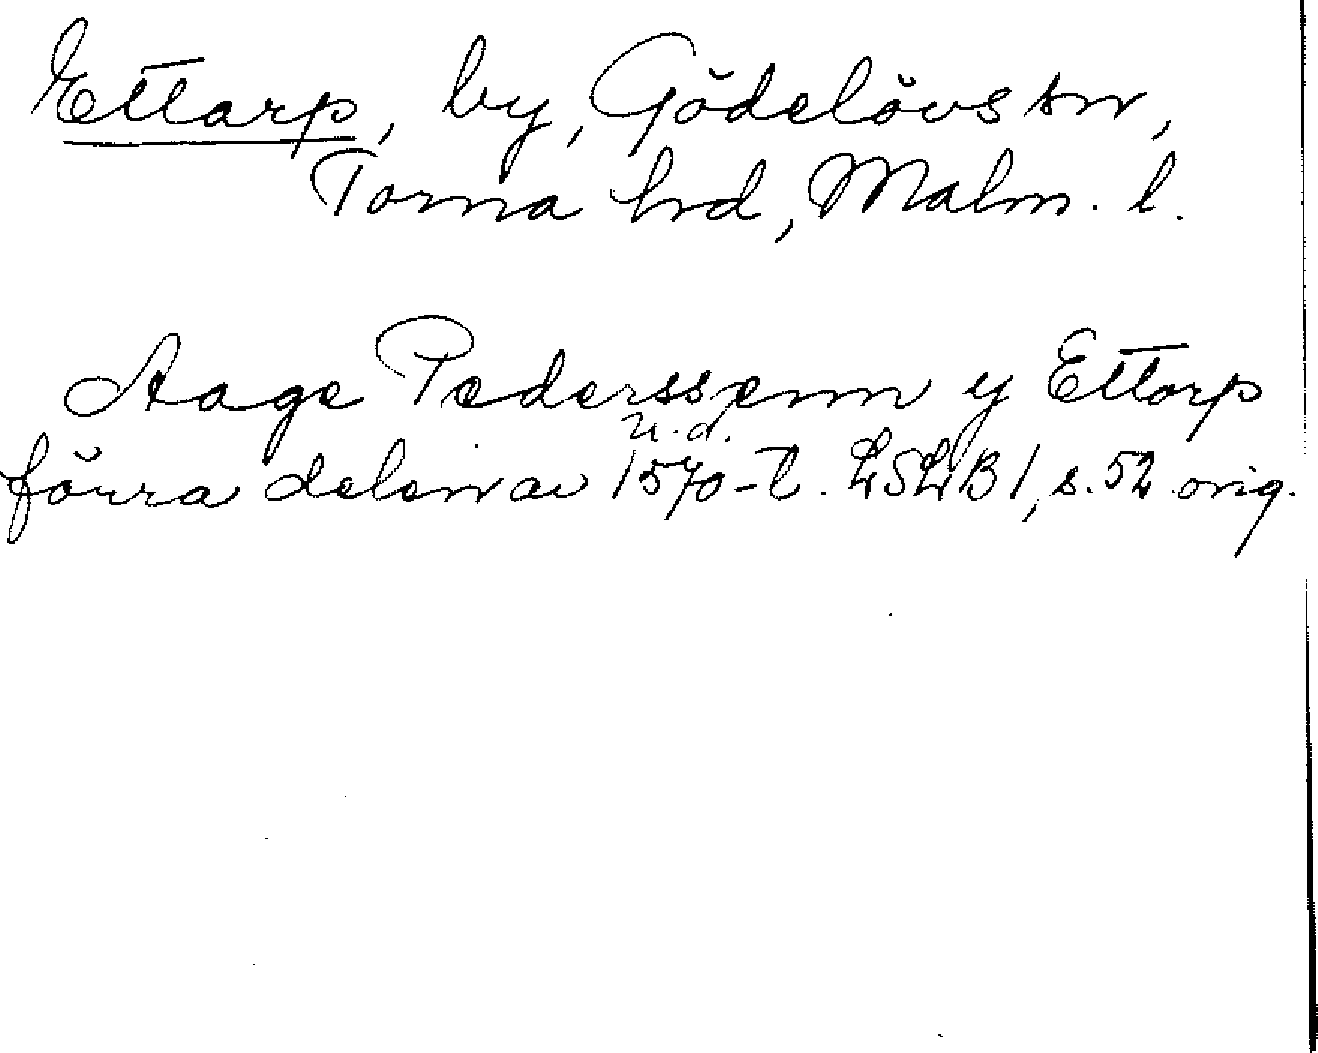 Ettarp, by, Gödelövs sn,
Torna hrd, Malm. l.
Aage Pederssenn y Ettorp
u. d.
förra delen av 1570-t. LSLB1, s. 52 orig.